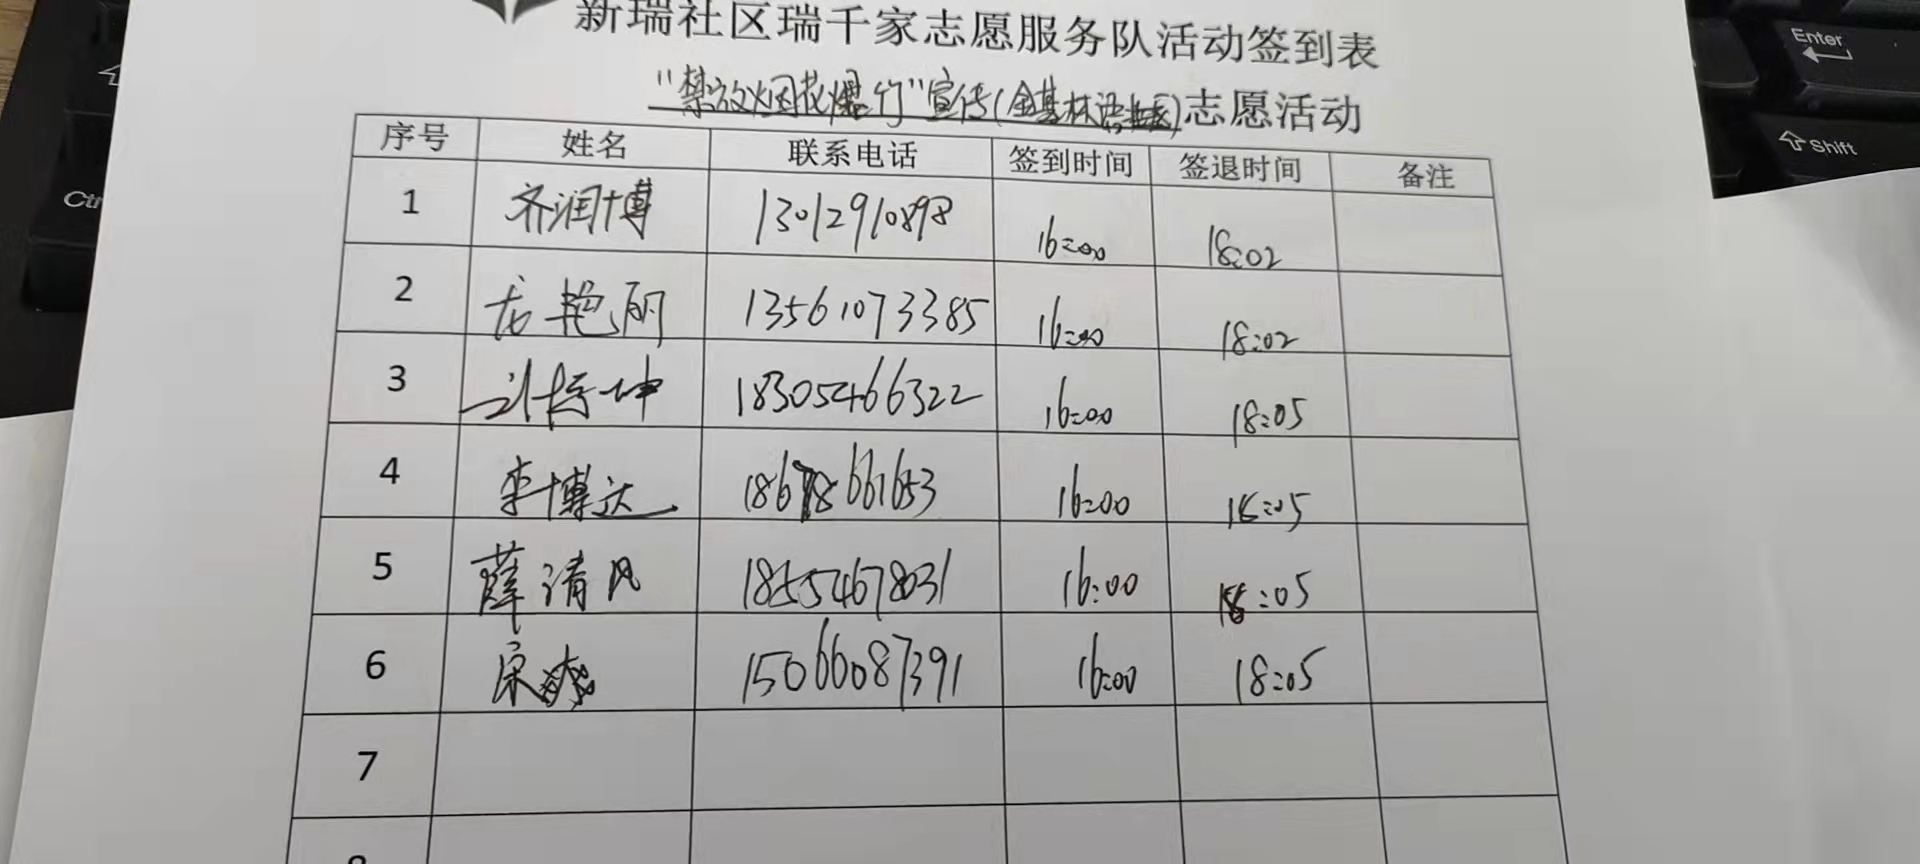 新瑞社区瑞千家志愿服务队活动签到表
"禁放烟花爆竹"宣传(金基林语社区)志愿活动
序号 姓名 联系电话 签到时间 签退时间 备注
1 齐润博 13012910898 16:00 18:02
2 尤艳丽 13561073385 16:00 18:02
3 18305466322 16:00 18:05
4 李博达 18678661653 16:00 18:05
5 薛清风 18554678031 16:00 18:05
6 宋 15066087391 16:00 18:05
7
Enter
Shift